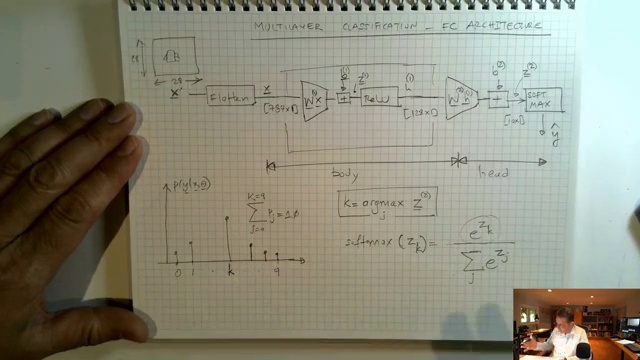 MULTILAYER CLASSIFICATION - FC ARCHITECTURE
28
28
x Flatten x [784x1] W⁽¹⁾x b⁽¹⁾ + z⁽¹⁾ ReLU h⁽¹⁾ [128x1] W⁽²⁾h⁽¹⁾ b⁽²⁾ + z⁽²⁾ [10x1] SOFT MAX
ŷ
body head
p(y|x,θ)
K=9
Σ Pj = 1.0
j=0
0 1 . k 9
k = argmax z⁽²⁾
j
softmax (z_k) = e^{z_k} / Σ e^{z_j}
j